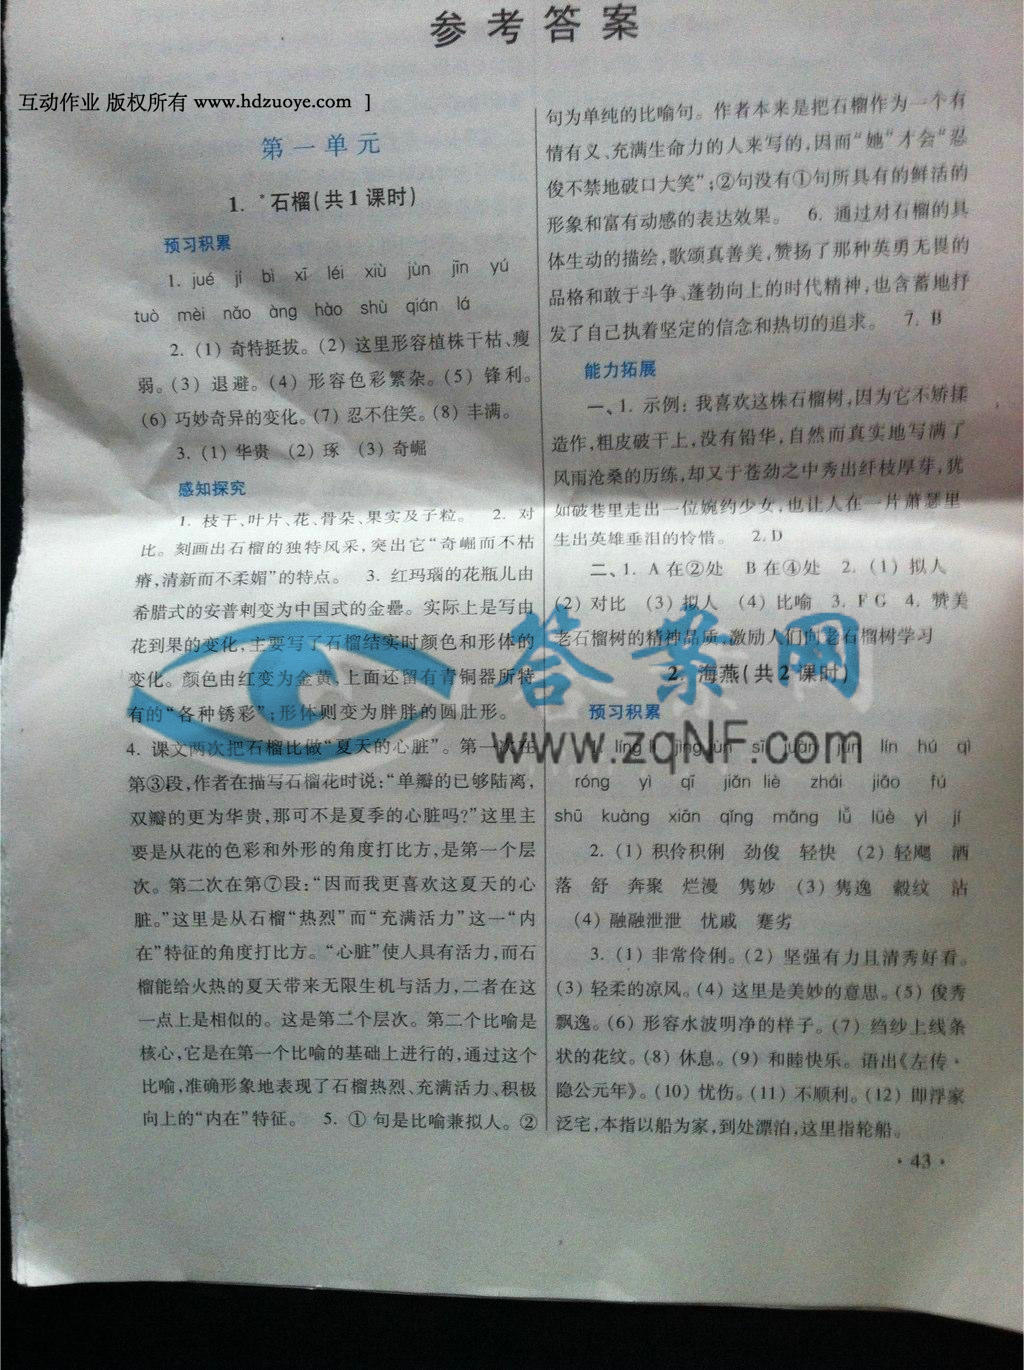 参考答案
互动作业 版权所有 www.hdzuoye.com ]
第一单元
1. *石榴(共1课时)
预习积累
1. jué jí bì xī léi xiù jùn jīn yú
tuò mèi nǎo àng hào shù qián lá
2. (1) 奇特挺拔。(2) 这里形容植株干枯、瘦
弱。(3) 退避。(4) 形容色彩繁杂。(5) 锋利。
(6) 巧妙奇异的变化。(7) 忍不住笑。(8) 丰满。
3. (1) 华贵 (2) 琢 (3) 奇崛
感知探究
1. 枝干、叶片、花、骨朵、果实及子粒。 2. 对
比。刻画出石榴的独特风采,突出它“奇崛而不枯
瘠,清新而不柔媚”的特点。 3. 红玛瑙的花瓶儿由
希腊式的安普剌变为中国式的金罍。实际上是写由
花到果的变化,主要写了石榴结实时颜色和形体的
变化。颜色由红变为金黄,上面还留有青铜器所特
有的“各种锈彩”;形体则变为胖胖的圆肚形。
4. 课文两次把石榴比做“夏天的心脏”。第一次在
第③段,作者在描写石榴花时说:“单瓣的已够陆离,
双瓣的更为华贵,那可不是夏季的心脏吗?”这里主
要是从花的色彩和外形的角度打比方,是第一个层
次。第二次在第⑦段:“因而我更喜欢这夏天的心
脏。”这里是从石榴“热烈”而“充满活力”这一“内
在”特征的角度打比方。“心脏”使人具有活力,而石
榴能给火热的夏天带来无限生机与活力,二者在这
一点上是相似的。这是第二个层次。第二个比喻是
核心,它是在第一个比喻的基础上进行的,通过这个
比喻,准确形象地表现了石榴热烈、充满活力、积极
向上的“内在”特征。 5. ① 句是比喻兼拟人。②
句为单纯的比喻句。作者本来是把石榴作为一个有
情有义、充满生命力的人来写的,因而“她“才会”忍
俊不禁地破口大笑”;②句没有①句所具有的鲜活的
形象和富有动感的表达效果。 6. 通过对石榴的具
体生动的描绘,歌颂真善美,赞扬了那种英勇无畏的
品格和敢于斗争、蓬勃向上的时代精神,也含蓄地抒
发了自己执着坚定的信念和热切的追求。 7. B
能力拓展
一、1. 示例:我喜欢这株石榴树,因为它不矫揉
造作,粗皮破干上,没有铅华,自然而真实地写满了
风雨沧桑的历练,却又于苍劲之中秀出纤枝厚芽,犹
如破巷里走出一位婉约少女,也让人在一片萧瑟里
生出英雄垂泪的怜惜。 2. D
二、1. A 在②处 B 在④处 2. (1) 拟人
(2) 对比 (3) 拟人 (4) 比喻 3. F G 4. 赞美
老石榴树的精神品质,激励人们向老石榴树学习
2. 海燕(共2课时)
预习积累
líng lì jìng jùn sī juàn jùn lín hú qì
róng yì qī jiān liè zhái jiāo fú
shū kuàng xiān qǐng mǎng lǚ lüè yì jí
2. (1) 积伶积俐 劲俊 轻快 (2) 轻飔 洒
落 舒 奔聚 烂漫 隽妙 (3) 隽逸 縠纹 沾
(4) 融融泄泄 忧戚 蹇劣
3. (1) 非常伶俐。(2) 坚强有力且清秀好看。
(3) 轻柔的凉风。(4) 这里是美妙的意思。(5) 俊秀
飘逸。(6) 形容水波明净的样子。(7) 绉纱上线条
状的花纹。(8) 休息。(9) 和睦快乐。语出《左传·
隐公元年》。(10) 忧伤。(11) 不顺利。(12) 即浮家
泛宅,本指以船为家,到处漂泊,这里指轮船。
· 43 ·
答案网
www.zqNF.com